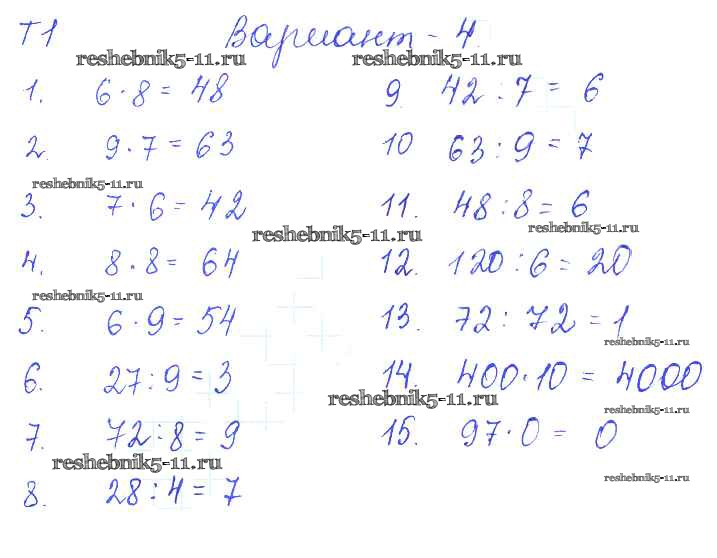 Т1 Вариант - 4.
reshebnik5-11.ru reshebnik5-11.ru
1. 6 · 8 = 48
2. 9 · 7 = 63
reshebnik5-11.ru
3. 7 · 6 = 42
4. 8 · 8 = 64
reshebnik5-11.ru
5. 6 · 9 = 54
6. 27 : 9 = 3
7. 72 : 8 = 9
reshebnik5-11.ru
8. 28 : 4 = 7
9 42 : 7 = 6
10 63 : 9 = 7
11. 48 : 8 = 6
reshebnik5-11.ru
reshebnik5-11.ru
12. 120 : 6 = 20
13. 72 : 72 = 1
reshebnik5-11.ru
14. 400 · 10 = 4000
reshebnik5-11.ru
reshebnik5-11.ru
15. 97 · 0 = 0
reshebnik5-11.ru